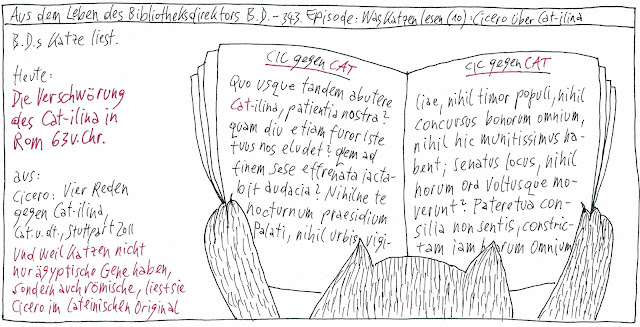 Aus dem Leben des Bibliotheksdirektors B.D. – 343. Episode: Was Katzen lesen (10): Cicero über Cat-ilina
B.D.s Katze liest.
Heute:
Die Verschwörung
des Cat-ilina in
Rom 63 v. Chr.
aus:
Cicero: Vier Reden
gegen Cat-ilina,
Cat. u. dt., Stuttgart 2011
Und weil Katzen nicht
nur ägyptische Gene haben,
sondern auch römische, liest sie
Cicero im Lateinischen Original
CIC gegen CAT
Quo usque tandem abutere
Cat-ilina, patientia nostra?
quam diu etiam furor iste
tuus nos eludet? quem ad
finem sese effrenata iacta-
bit audacia? Nihilne te
nocturnum praesidium
Palati, nihil urbis vigi-
CIC gegen CAT
liae, nihil timor populi, nihil
concursus bonorum omnium,
nihil hic munitissimus ha-
bent; senatus locus, nihil
horum ora voltusque mo-
verunt? Patere tua con-
silia non sentis, constric-
tam iam horum omnium